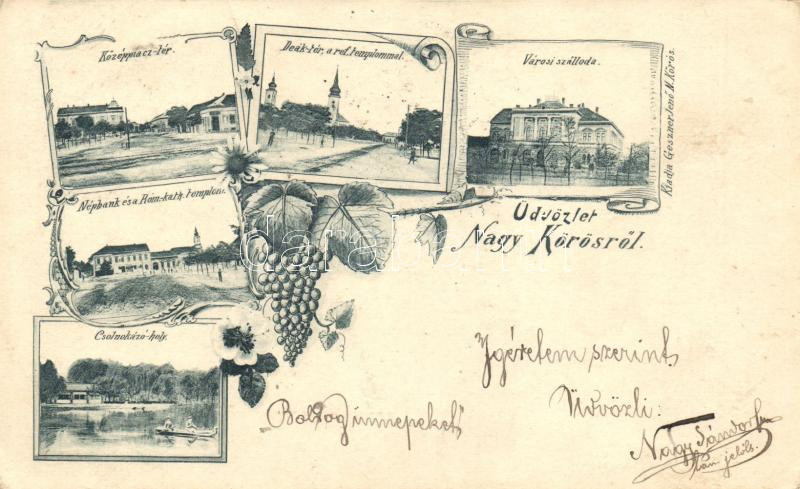 Középpiacz-tér.
Deák-tér, a ref. templommal.
Városi szálloda.
Kiadja Geszner Jenő N. Körös.
Népbank és a Rom. kath. templom.
Üdvözlet
Nagy Körösről.
darabanth.com
Csolnakázó-hely.
Igéretem szerint
Üdvözli:
Boldog ünnepeket
Nagy Sándor
tan. jelölt.